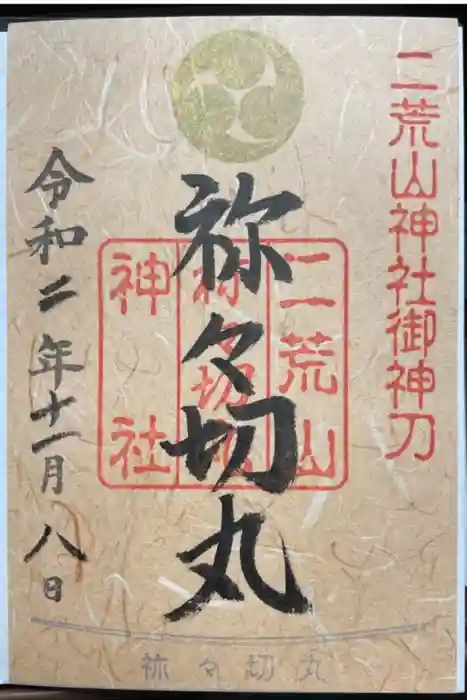 二荒山神社御神刀
祢々切丸
二荒山
祢々切丸
神社
令和二年十一月八日
祢々切丸